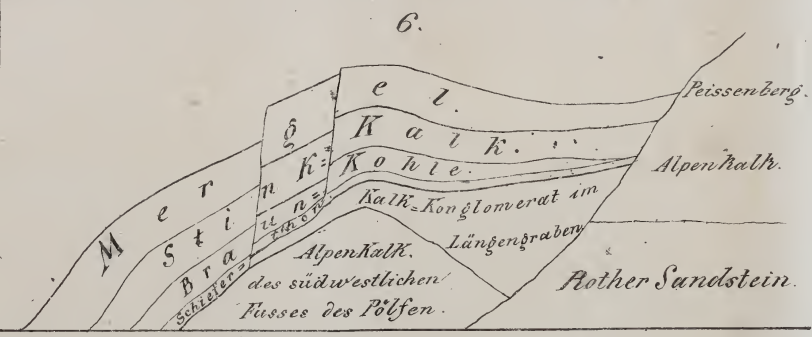 6.
Mergel.
Stink=Kalk.
Braun=Kohle.
Schiefer=thon.
Kalk=Konglomerat im
Längengraben
Alpenkalk.
des südwestlichen
Fusses des Pölfen.
Peissenberg.
Alpenkalk.
Rother Sandstein.